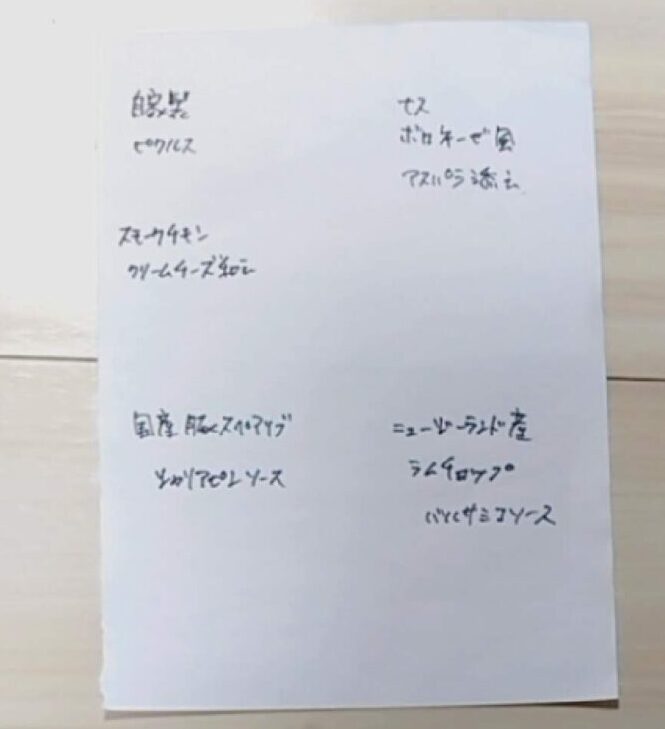 自家製
ピクルス
スモークチキン
クリームチーズ和え
国産豚スペアリブ
シャリアピンソース
ナス
ボロネーゼ風
アスパラ添え
ニュージーランド産
ラムチョップ
バルサミコソース